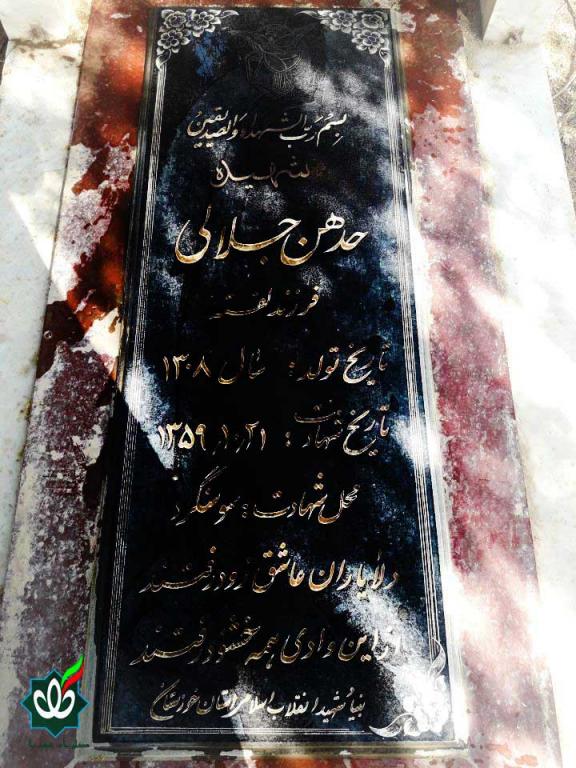 بسم رب الشهداء والصدیقین
شهیده
حدهن جلالی
فرزند لفته
تاریخ تولد: سال ۱۳۰۸
تاریخ شهادت: ۱۳۵۹،۱۰،۲۱
محل شهادت: سوسنگرد
دلا یاران عاشق زود رفتند
از این وادی همه خشنود رفتند
بنیاد شهید انقلاب اسلامی استان خوزستان